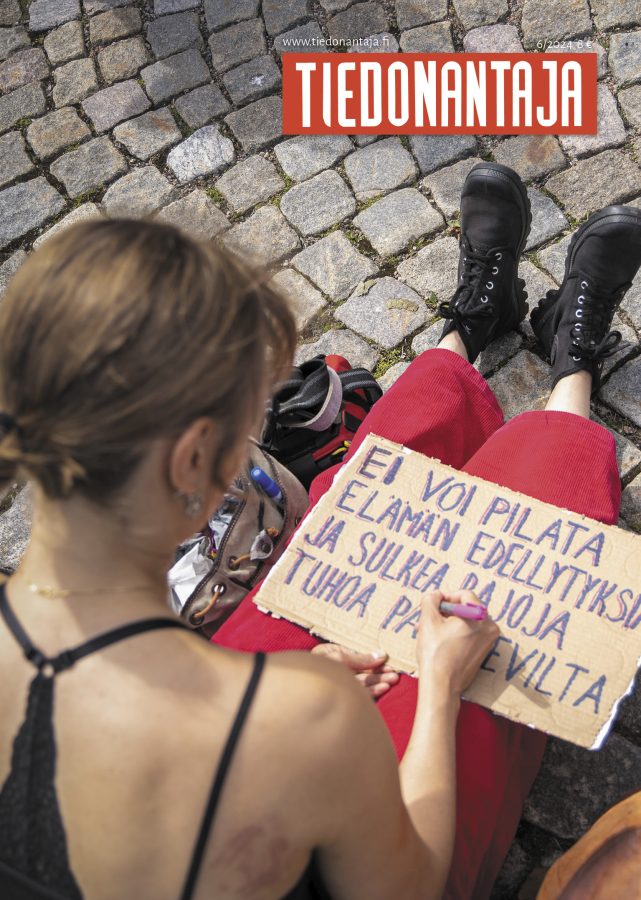 www.tiedonantaja.fi
6/2024, 8 €
TIEDONANTAJA
EI VOI PILATA
ELÄMÄN EDELLYTYKSIÄ
JA SULKEA RAJOJA
TUHOA PA EVILTA